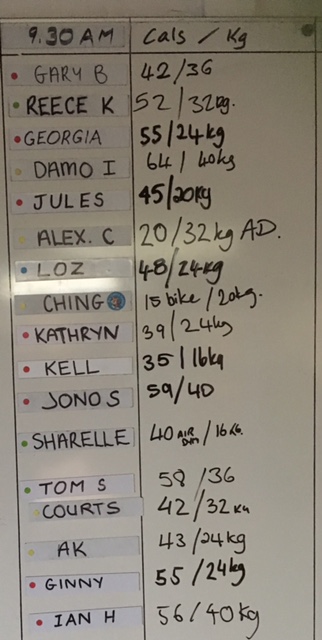 9.30 AM Cals / Kg
GARY B 42/36
REECE K 52/32kg.
GEORGIA 55/24kg
DAMO I 64/40kg
JULES 45/20kg
ALEX. C 20/32kg AD.
LOZ 48/24kg
CHING 15 bike/20kg.
KATHRYN 39/24kg
KELL 35/16kg
JONO S 59/40
SHARELLE 40 AIR /16 KG.
TOM S 58/36
COURTS 42/32kg
AK 43/24kg
GINNY 55/24kg
IAN H 56/40kg